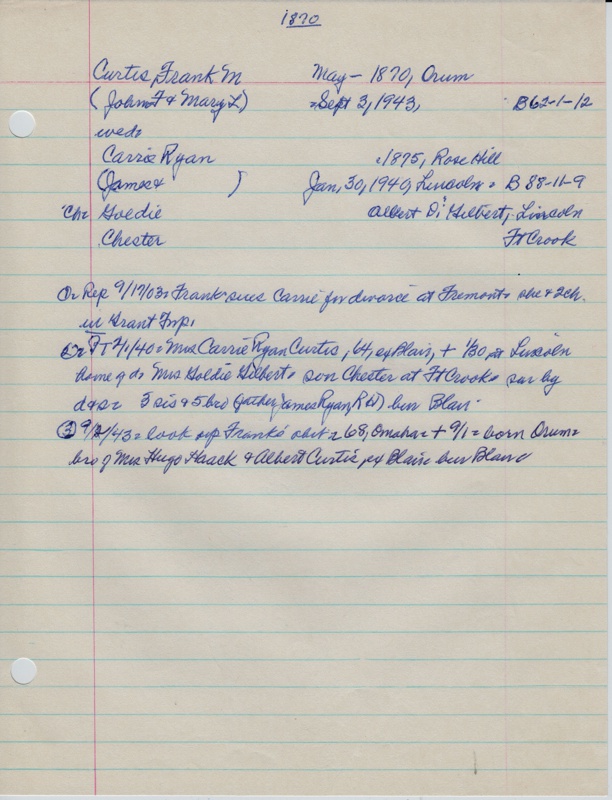 1870
Curtis, Frank M May - 1870, Orum
(John F & Mary L) Sept 3, 1943, B62-1-12
wed:
Carrie Ryan c1875, Rose Hill
(James & ) Jan, 30, 1940, Lincoln B 88-11-9
Ch: Goldie Albert D. Gilbert, Lincoln
Chester Ft Crook
Rep 9/17/03: Frank sues Carrie for divorce at Fremont she & 2ch.
in Grant Twp.
Mrs Carrie Ryan Curtis, 64, ex Blair, + 1/30 at Lincoln
home of d. Mrs Goldie Gilbert son Chester at Ft Crook sur by
d & s = 3 sis & 5 bro (father James Ryan, R H) bur Blair
= look up Franks' obit = 68, Omaha = + 9/1 = born Orum =
bro of Mrs Hugo Haack & Albert Curtis, ex Blair = bur Blair